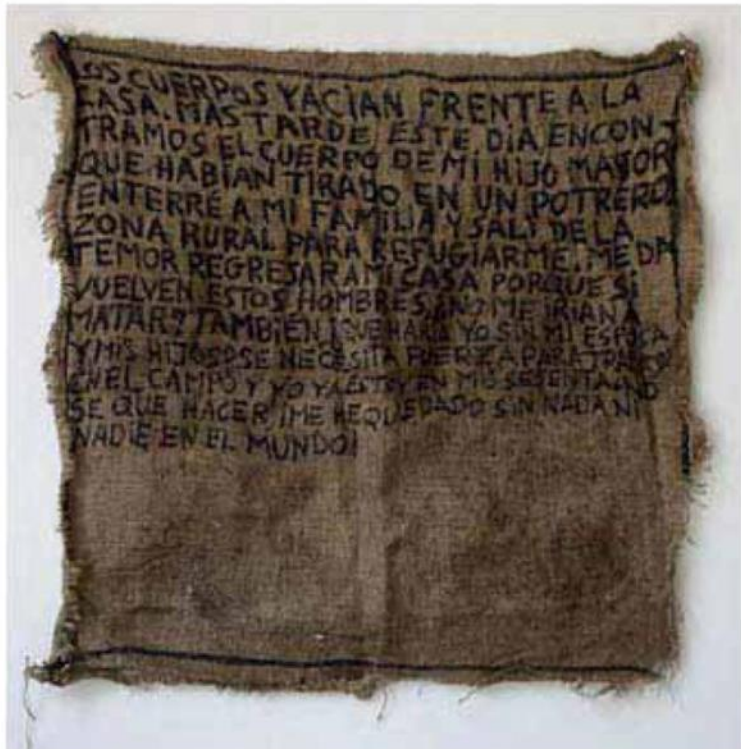 LOS CUERPOS YACIAN FRENTE A LA
CASA. MAS TARDE, ESTE DÍA ENCON-
TRAMOS EL CUERPO DE MI HIJO MAYOR
QUE HABÍAN TIRADO EN UN POTRERO.
ENTERRÉ A MI FAMILIA Y SALÍ DE LA
ZONA RURAL PARA REFUGIARME. ME DA
TEMOR REGRESAR A MI CASA PORQUE SI
VUELVEN ESTOS HOMBRES, ¿NO ME IRIAN A
MATAR? TAMBIÉN ¿QUE HARÉ YO SIN MI ESPOSA
Y MIS HIJOS? SE NECESITA FUERZA PARA
EN EL CAMPO Y YO YA ESTOY EN MIS SESENTA. NO
SE QUE HACER, ¡ME HE QUEDADO SIN NADA NI
NADIE EN EL MUNDO!